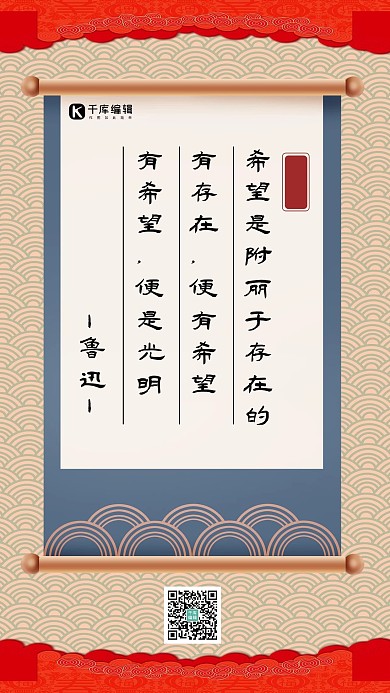 千库编辑
希望是附丽于存在的
有存在，便有希望
有希望，便是光明
-鲁迅-